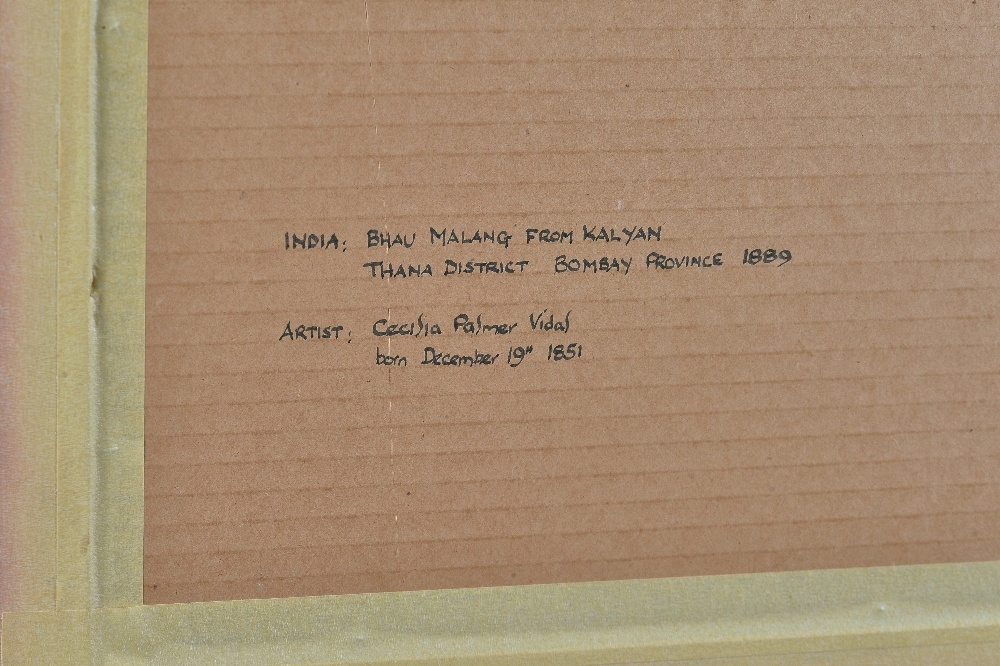 INDIA; BHAU MALANG FROM KALYAN
THANA DISTRICT BOMBAY PROVINCE 1889
ARTIST; Cecilia Palmer Vidal
born December 19" 1851